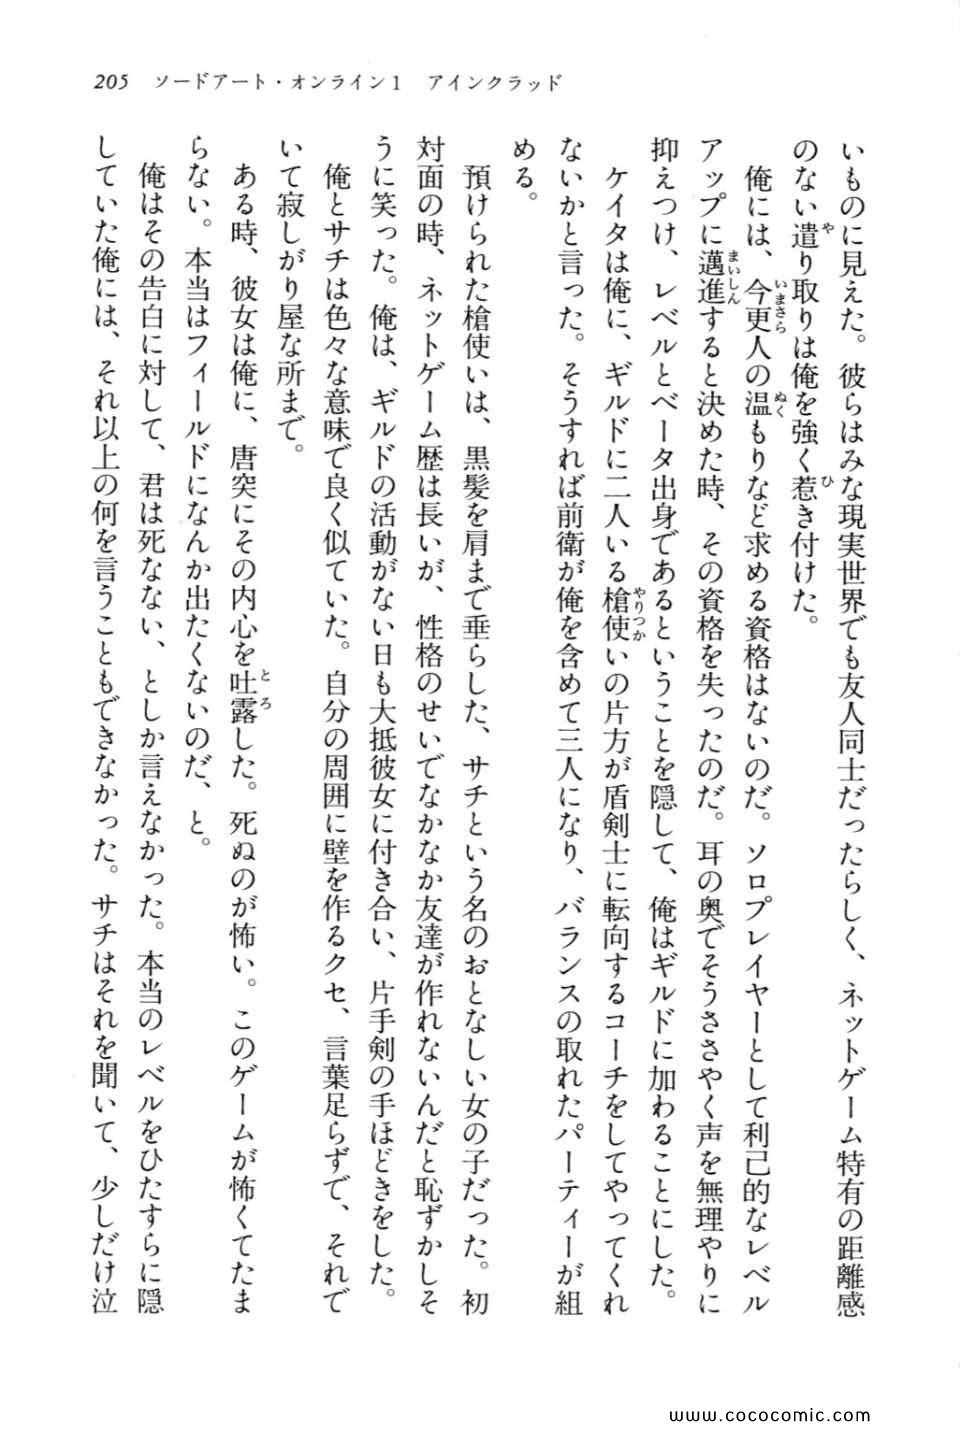 205　ソードアート・オンライン1　アインクラッド
いものに見えた。彼らはみな現実世界でも友人同士だったらしく、ネットゲーム特有の距離感
のない遣り取りは俺を強く惹き付けた。
　俺には、今更人の温もりなど求める資格はないのだ。ソロプレイヤーとして利己的なレベル
アップに邁進すると決めた時、その資格を失ったのだ。耳の奥でそうささやく声を無理やりに
抑えつけ、レベルとベータ出身であるということを隠して、俺はギルドに加わることにした。
　ケイタは俺に、ギルドに二人いる槍使いの片方が盾剣士に転向するコーチをしてやってくれ
ないかと言った。そうすれば前衛が俺を含めて三人になり、バランスの取れたパーティーが組
める。
　預けられた槍使いは、黒髪を肩まで垂らした、サチという名のおとなしい女の子だった。初
対面の時、ネットゲーム歴は長いが、性格のせいでなかなか友達が作れないんだと恥ずかしそ
うに笑った。俺は、ギルドの活動がない日も大抵彼女に付き合い、片手剣の手ほどきをした。
　俺とサチは色々な意味で良く似ていた。自分の周囲に壁を作るクセ、言葉足らずで、それで
いて寂しがり屋な所まで。
　ある時、彼女は俺に、唐突にその内心を吐露した。死ぬのが怖い。このゲームが怖くてたま
らない。本当はフィールドになんか出たくないのだ、と。
　俺はその告白に対して、君は死なない、としか言えなかった。本当のレベルをひたすらに隠
していた俺には、それ以上の何を言うこともできなかった。サチはそれを聞いて、少しだけ泣
www.cococomic.com